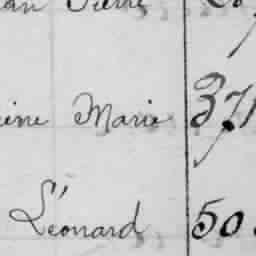 an Pierre
ine Marie 371
Léonard 50